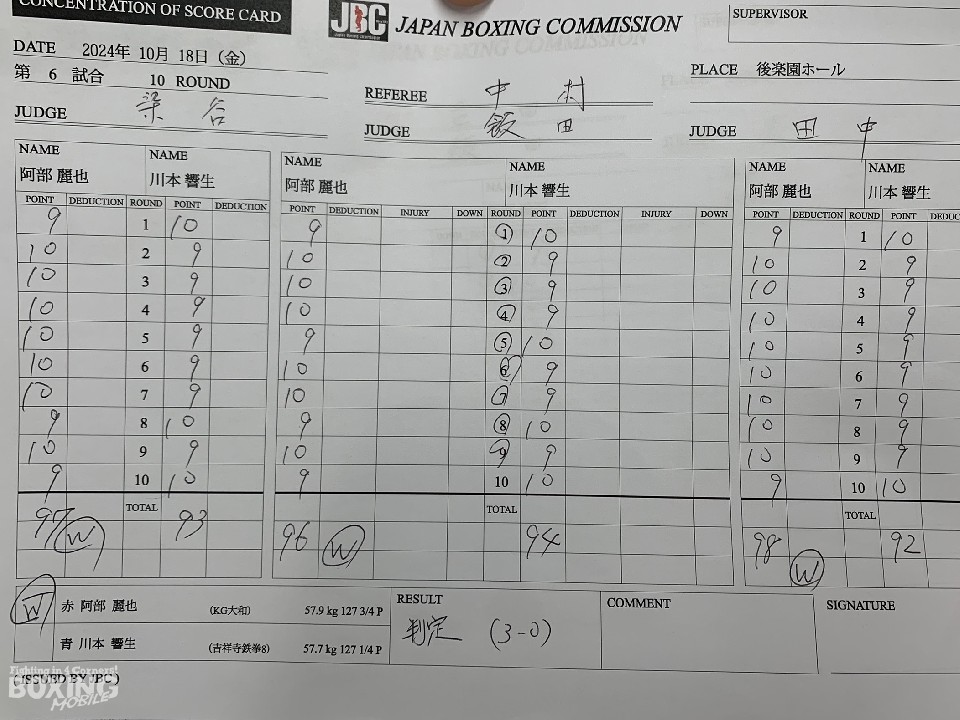 CONCENTRATION OF SCORE CARD
JBC JAPAN BOXING COMMISSION
SUPERVISOR
DATE 2024年 10月 18日（金）
第 6 試合 10 ROUND
PLACE 後楽園ホール
REFEREE 中村
JUDGE 染谷
JUDGE 飯田
JUDGE 田中
NAME NAME NAME NAME NAME NAME
阿部 麗也 川本 響生 阿部 麗也 川本 響生 阿部 麗也 川本 響生
POINT DEDUCTION ROUND POINT DEDUCTION POINT DEDUCTION INJURY DOWN ROUND POINT DEDUCTION INJURY DOWN POINT DEDUCTION ROUND POINT
9 1 10 9 1 10 9 1 10
10 2 9 10 2 9 10 2 9
10 3 9 10 3 9 10 3 9
10 4 9 10 4 9 10 4 9
10 5 9 9 5 10 10 5 9
10 6 9 10 6 9 10 6 9
10 7 9 10 7 9 10 7 9
9 8 10 9 8 10 10 8 9
10 9 9 10 9 9 10 9 9
9 10 10 9 10 10 9 10 10
TOTAL TOTAL TOTAL
97 W 93 96 W 94 98 W 92
W 赤 阿部 麗也 (KG大和) 57.9 kg 127 3/4 P
青 川本 響生 (吉祥寺鉄拳8) 57.7 kg 127 1/4 P
RESULT
判定 (3-0)
COMMENT
SIGNATURE
(ISSUED BY JBC)
Fighting in 4 Corners!
BOXING
MOBILE